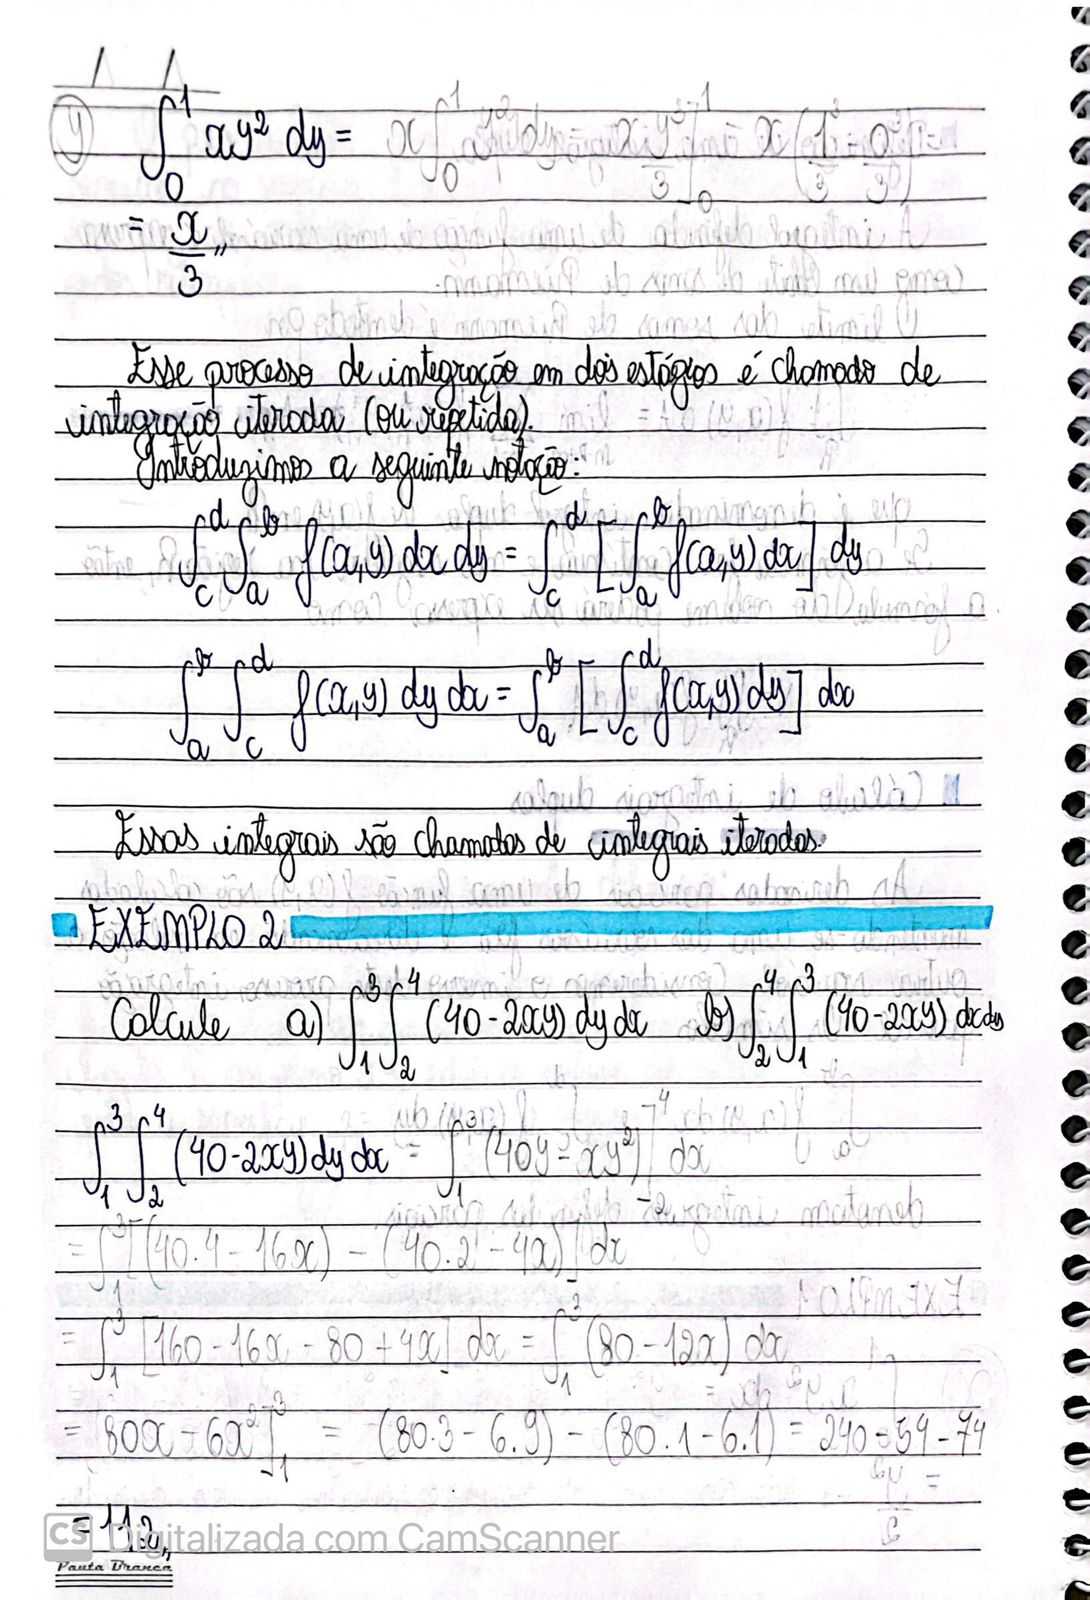 y ∫₀¹ xy² dy = x ∫₀¹ y² dy = x y³/3 ]₀¹ = x (1³/3 - 0³/3)
= x/3 ,,
Esse processo de integração em dois estágios é chamado de
integração iterada (ou repetida).
Introduzimos a seguinte notação:
∫_c^d ∫_a^b f(x,y) dx dy = ∫_c^d [∫_a^b f(x,y) dx] dy
∫_a^b ∫_c^d f(x,y) dy dx = ∫_a^b [∫_c^d f(x,y) dy] dx
Essas integrais são chamadas de integrais iteradas.
EXEMPLO 2
Calcule a) ∫₁³ ∫₂⁴ (40 - 2xy) dy dx b) ∫₂⁴ ∫₁³ (40 - 2xy) dx dy
∫₁³ ∫₂⁴ (40 - 2xy) dy dx = ∫₁³ (40y - xy²) ]₂⁴ dx
= ∫₁³ [(40.4 - 16x) - (40.2 - 4x)] dx
= ∫₁³ [160 - 16x - 80 + 4x] dx = ∫₁³ (80 - 12x) dx
= 80x - 6x² ]₁³ = (80.3 - 6.9) - (80.1 - 6.1) = 240 - 54 - 74
= 112,,
CS Digitalizada com CamScanner
Pauta Branca